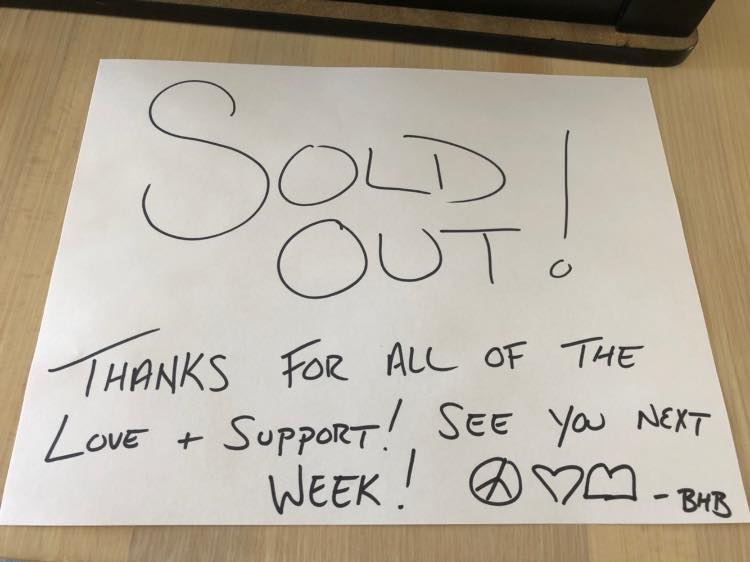 SOLD
OUT!
THANKS FOR ALL OF THE
LOVE + SUPPORT! SEE YOU NEXT
WEEK! - BHB